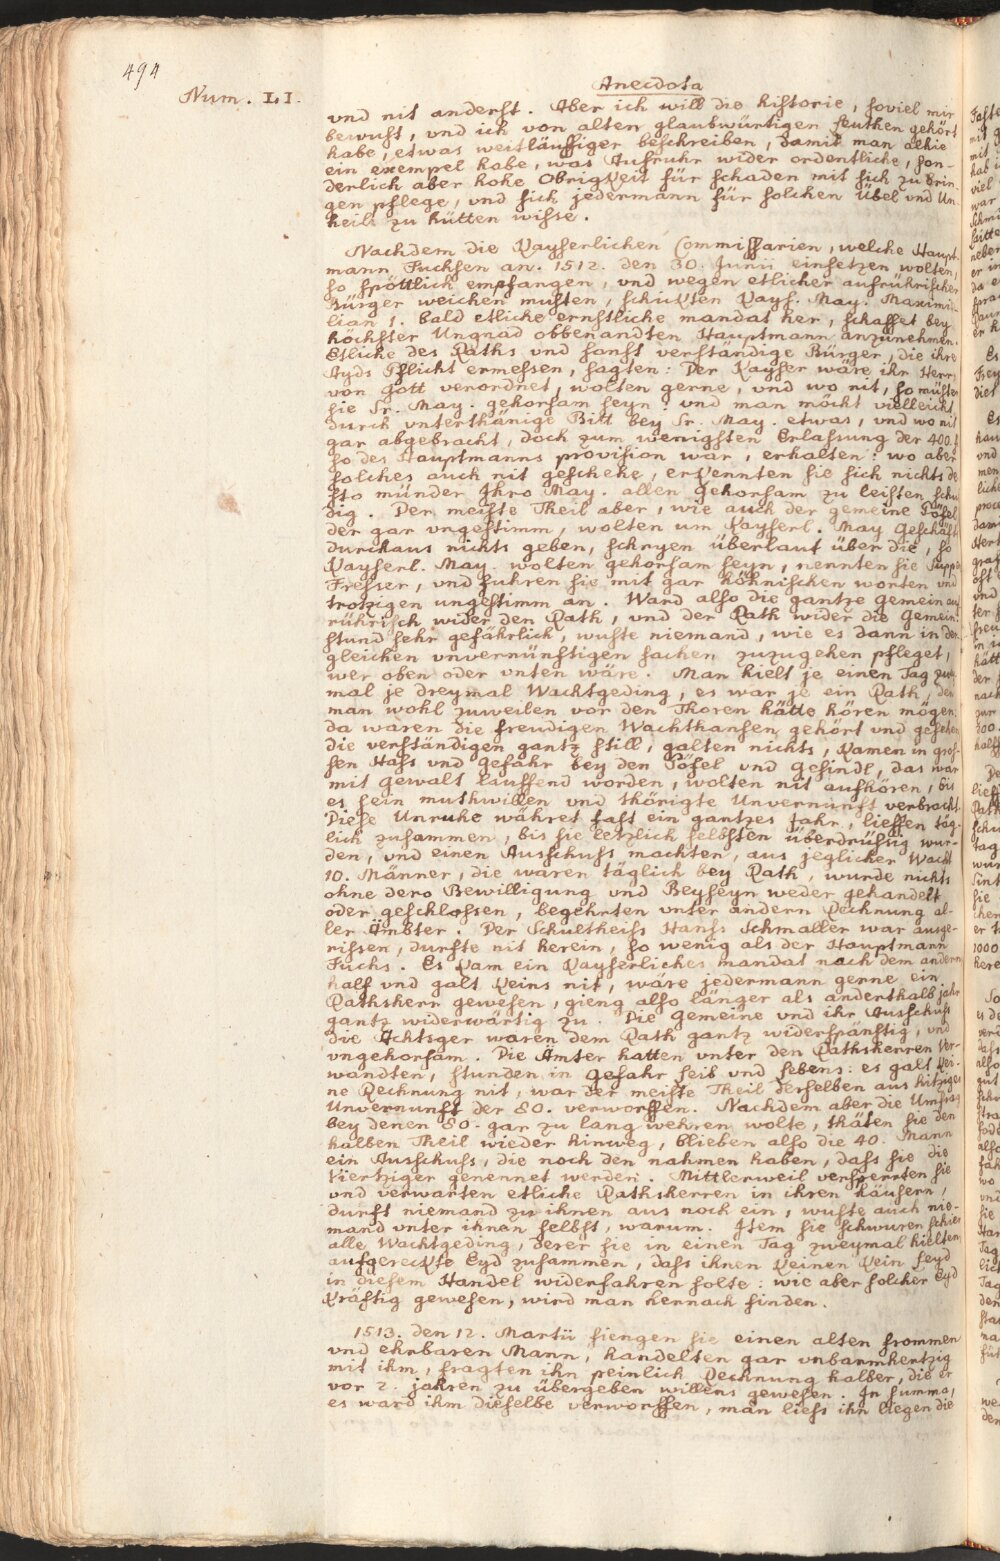 494
Num. LI.
Anecdota
vnd nit anderst. Aber ich will die historie, soviel mir
bewust, vnd ich von alten glaubwürtigen leuthen gehört
habe, etwas weitläuffiger beschreiben, damit man alhie
ein exempel habe, was Aufruhr wider ordentliche, son-
derlich aber hohe Obrigkeit für schaden mit sich zu brin-
gen pflege, vnd sich jedermann für solchen Übel vnd Un-
heil zu hütten wisse.
Nachdem die Kayserlichen Commissarien, welche Haupt-
mann Fuchsen an. 1512. den 30. Junii einsetzen wolten,
so spöttlich empfangen, vnd wegen etlicher aufrührischer
Bürger weichen musten, schickten Kays. May. Maximi-
lian 1. bald etliche ernstliche mandat her, schaffet bey
hochster Ungnad obbenandten Hauptmann anzunehmen.
Etliche des Raths vnd sonst verständige Bürger, die ihre
Ayds Pflicht ermessen, sagten: Der Kayser wäre ihr Herr,
von Gott verordnet, wolten gerne, vnd wo nit, so müsten
sie Sr. May. gehorsam seyn: vnd man möcht vielleicht
durch vnterthänige Bitt bey Sr. May. etwas, vnd wo nit
gar abgebracht, doch zum wenigsten Erlassung der 400. f
so des Hauptmanns provision war, erhalten: wo aber
solches auch nit geschehe, erkennten sie sich nichts de
sto münder Ihro May. allen gehorsam zu leisten schu
dig. Der meiste Theil aber, wie auch der gemeine Pöfel
der gar vngestimm, wolten um Kayserl. May Geschäft
durchaus nichts geben, schryen überlaut über die, so
Kayserl. May. wolten gehorsam seyn, nennten sie Supp
Fresser, vnd fuhren sie mit gar höhnischen worten vnd
trotzigen ungestimm an. Ward also die gantze gemein auf
rührisch wider den Rath, vnd der Rath wider die Gemein:
stund sehr gefährlich, wuste niemand, wie es dann in der
gleichen vnvernünftigen sachen zuzugehen pfleget,
wer oben oder vnten wäre. Man hielt je einen Tag zwey
mal je dreymal Wachtgeding, es war je ein Rath, den
man wohl zuweilen vor den Thoren hätte hören mögen:
da waren die freudigen Wachthansen gehört vnd gesehen
die verständigen gantz still, galten nichts, kamen in gros-
sen Hass vnd gefahr bey den Pöfel vnd gesindl, das war
mit gewalt lauffend worden, wolten nit aufhören, bis
es sein muthwillen vnd thörigte Unvernunft verbracht.
Diese Unruhe währet fast ein gantzes Jahr, lieffen täg-
lich zusammen, bis sie letzlich selbsten überdrüssig wur-
den, vnd einen Ausschuss machten, aus jeglicher Wacht
10. Männer, die waren täglich bey Rath, wurde nichts
ohne dero Bewilligung vnd Beyseyn weder gehandelt
oder geschlossen, begehrten vnter andern Rechnung al-
ler Ämbter. Der Schultheiss Hanss Schmaller war ausge-
rissen, durfte nit herein, so wenig als der Hauptmann
Fuchs. Es kam ein Kayserliches mandat nach dem andern
half vnd galt keins nit, wäre jedermann gerne ein
Rathsherr gewesen, gieng also länger als anderthalb jahr
gantz widerwärtig zu. Die gemeine vnd ihr Ausschuss
die Achtsger waren dem Rath gantz widerspänstig, vnd
vngehorsam. Die Ämter hatten vnter den Rathsherren Ver-
wandten, stunden in gefahr leib vnd lebens: es galt kei-
ne Rechnung nit, war der meiste Theil derselben aus hitziger
Unvernunft der 80. verworffen. Nachdem aber die Umfrag
bey denen 80. gar zu lang wehren wolte, thäten sie den
halben Theil wieder hinweg, blieben also die 40. Mann
ein Ausschuss, die noch den nahmen haben, dass sie die
Viertziger genennet werden. Mittlerweil versperrten sie
vnd verwarten etliche Rathsherren in ihren häusern,
durft niemand zu ihnen aus noch ein, wuste auch nie-
mand vnter ihnen selbst, warum. Item sie schwuren schier
alle Wachtgeding, derer sie in einen Tag zweymal hielten,
aufgereckte Eyd zusammen, dass ihnen keinen kein leyd
in diesem Handel widerfahren solte: wie aber solcher Eyd
kräftig gewesen, wird man hernach finden.
1513. den 12. Martii fiengen sie einen alten frommen
vnd ehrbaren Mann, handelten gar vnbarmhertzig
mit ihm, fragten ihn peinlich Rechnung halber, die er
vor 2. jahren zu übergeben willens gewesen. In summa,
es ward ihm dieselbe verworffen, man liess ihn liegen die